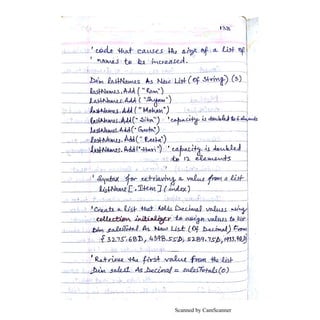 138
' code that causes the size of a list of
' names to be increased.
Dim lastNames As New List (Of String) (3)
lastNames.Add ("Ram")
lastNames.Add ("Shyam")
lastNames.Add ("Mohan")
lastNames.Add ("Sita") 'capacity is doubled to 6 elements
lastNames.Add ("Geeta")
lastNames.Add ("Reeta")
lastNames.Add ("Hari") 'capacity is doubled
to 12 elements
' Syntax for retrieving a value from a list
listName [.Item] (index)
'Create a list that holds Decimal values using
collection initializer to assign values to list
Dim salesTotal As New List (Of Decimal) From
{3275.68D, 4398.55D, 5289.75D,
'Retrieve the first value from the list
Dim sales1 As Decimal = salesTotals(0)
Scanned by CamScanner